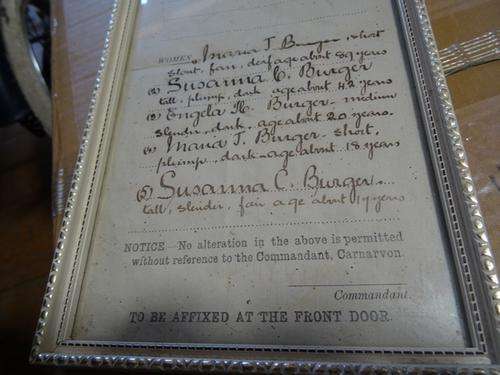 WOMEN. Maria J. Burger, short
stout, fair, deaf age about 59 years
(2) Susanna C. Burger
tall, plump, dark age about 42 years
(3) Engela M. Burger - medium
slender, dark, age about 20 years.
(4) Maria J. Burger - short,
plump, dark - age about 18 years
(5) Susanna C. Burger
tall, slender, fair age about 17 years
NOTICE—No alteration in the above is permitted
without reference to the Commandant, Carnarvon.
Commandant.
TO BE AFFIXED AT THE FRONT DOOR.